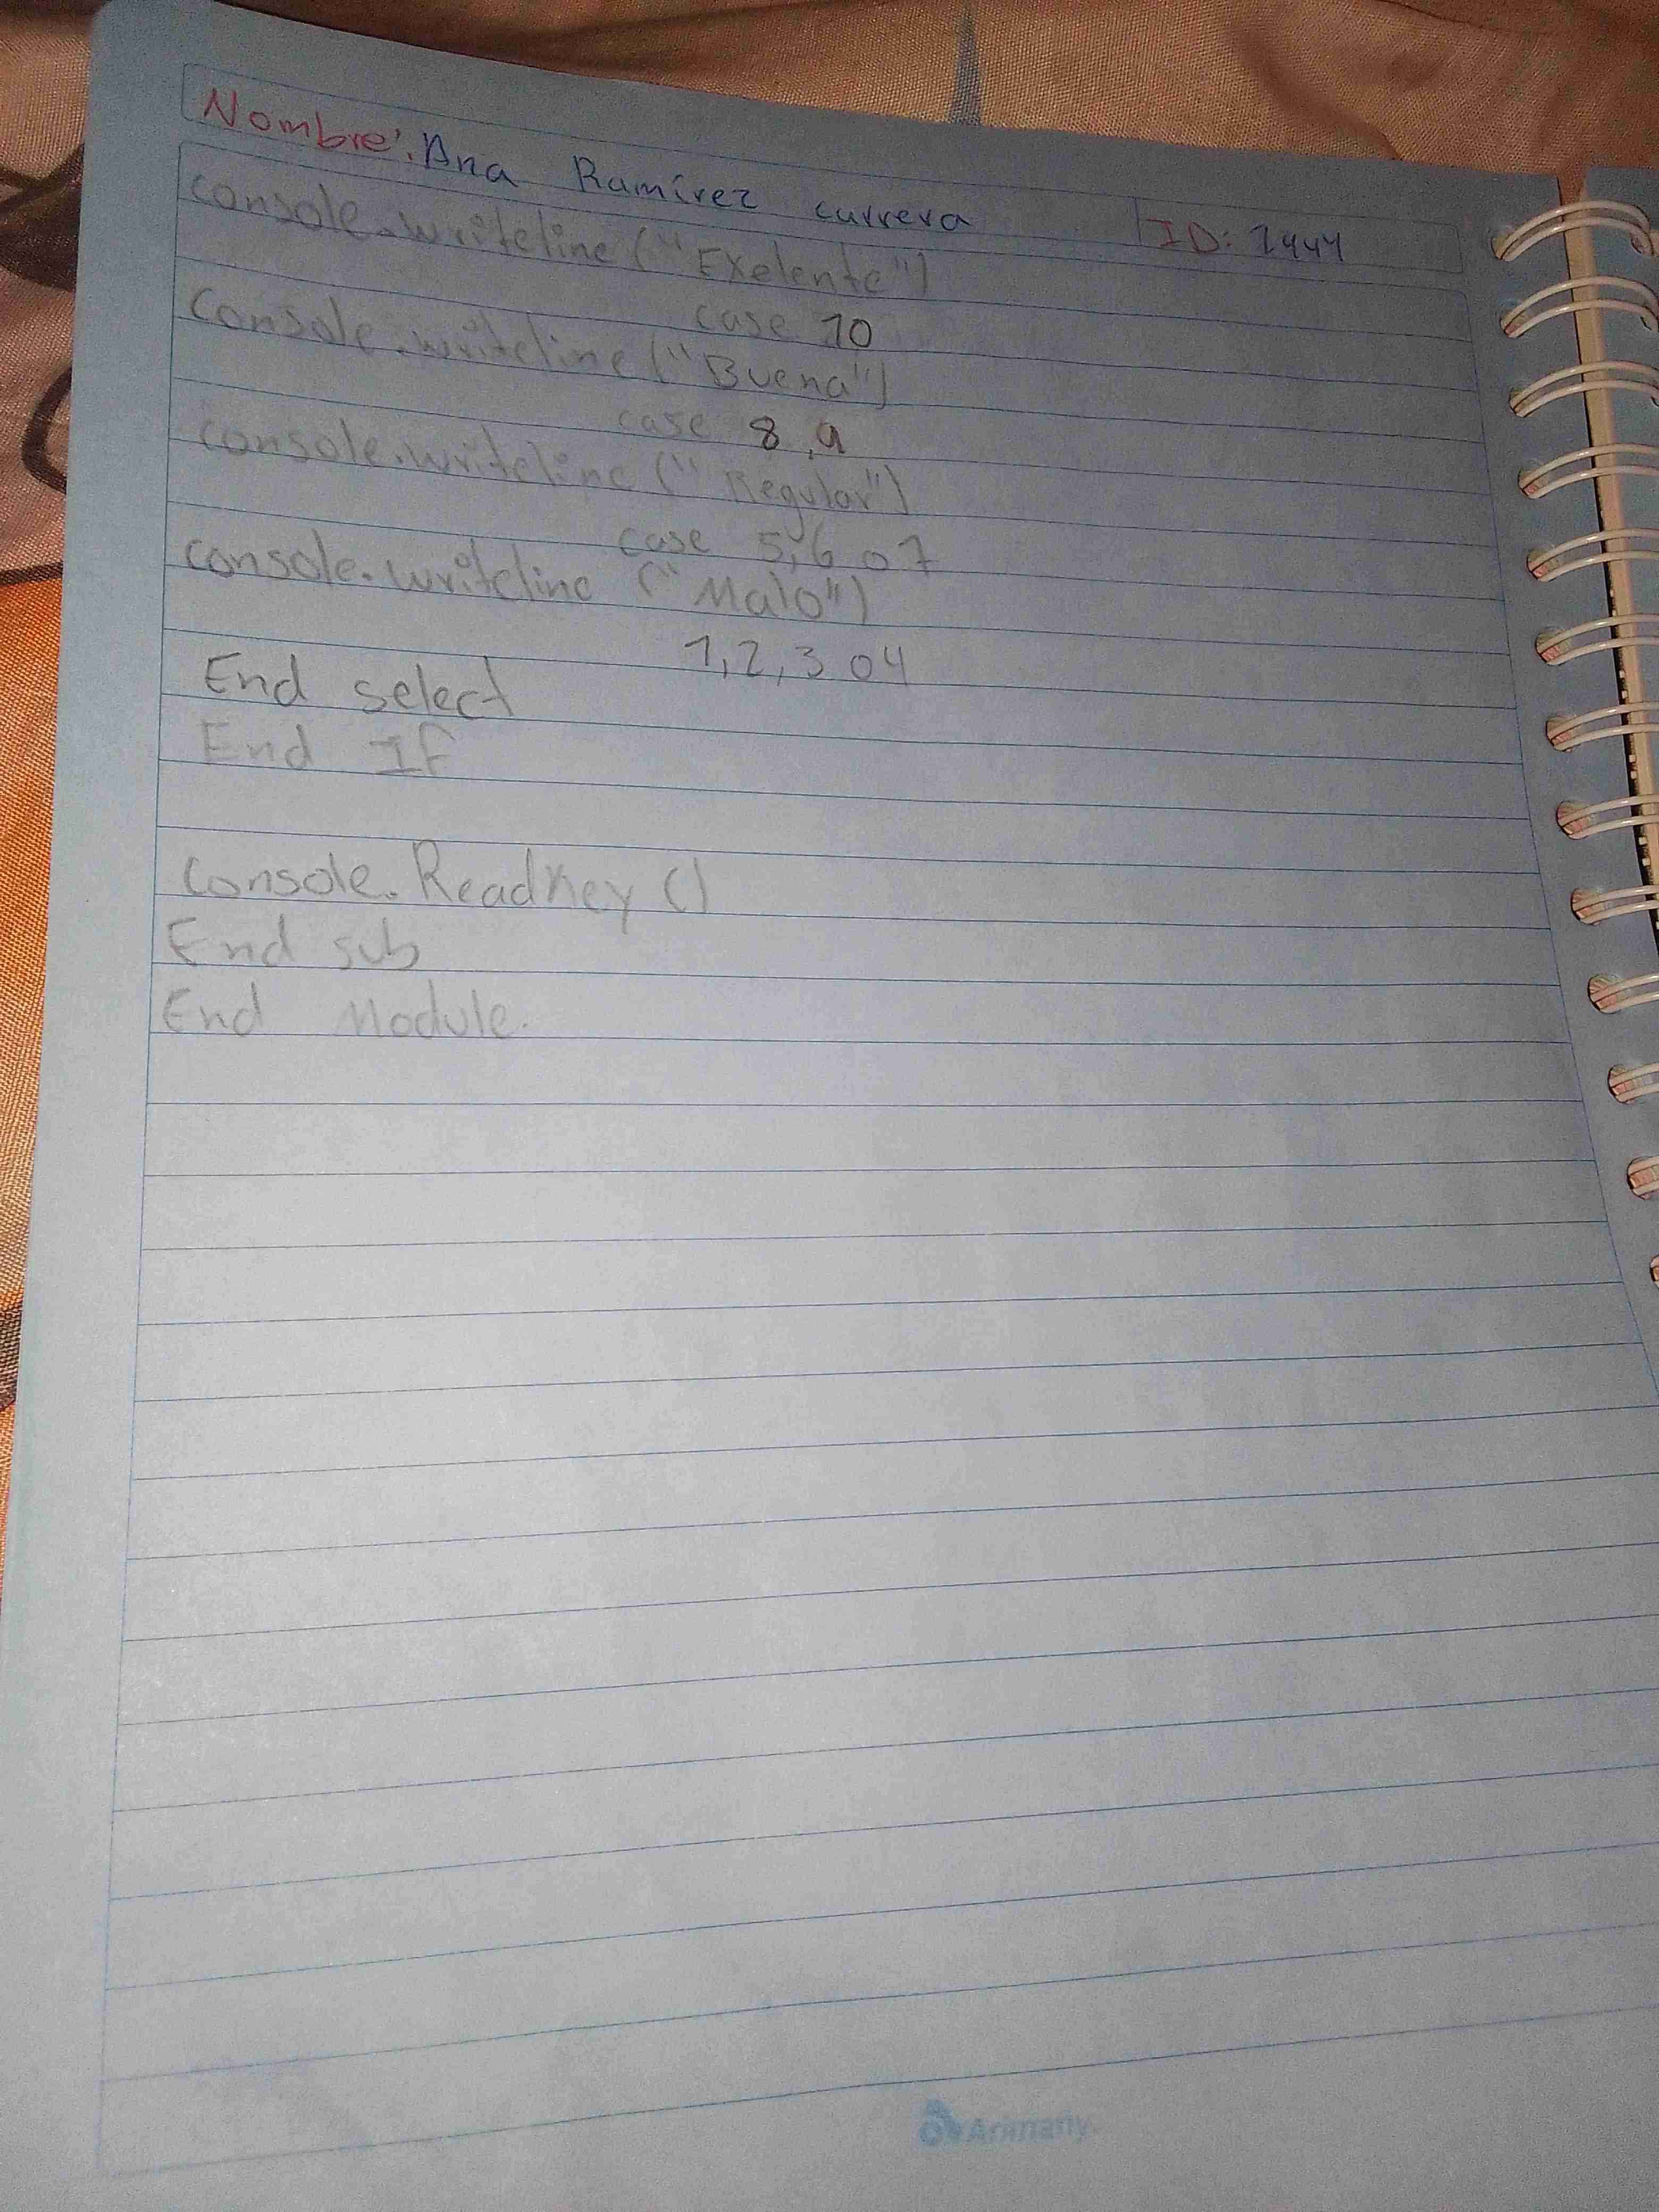 Nombre: Ana Ramírez currera ID: 1444
console.writeline ("Exelente")
case 10
Console.writeline ("Buena")
case 8,9
console.writeline ("Regular")
case 5,6 o 7
console.writeline ("Malo")
1,2,3 o 4
End select
End If
Console.ReadKey ()
End sub
End Module.
Arimany